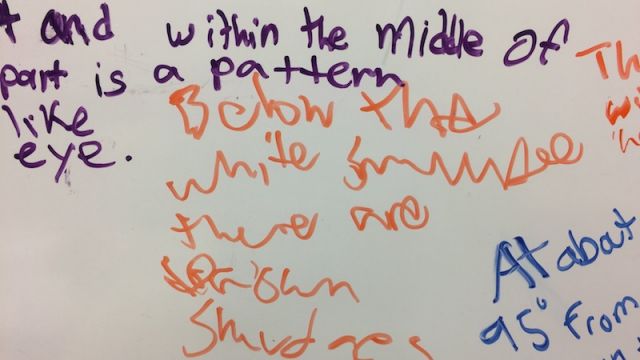 and within the middle of
part is a pattern
like
eye.
Below the
white
there are
brown
Smudges
Th
wi
At abat
95° From